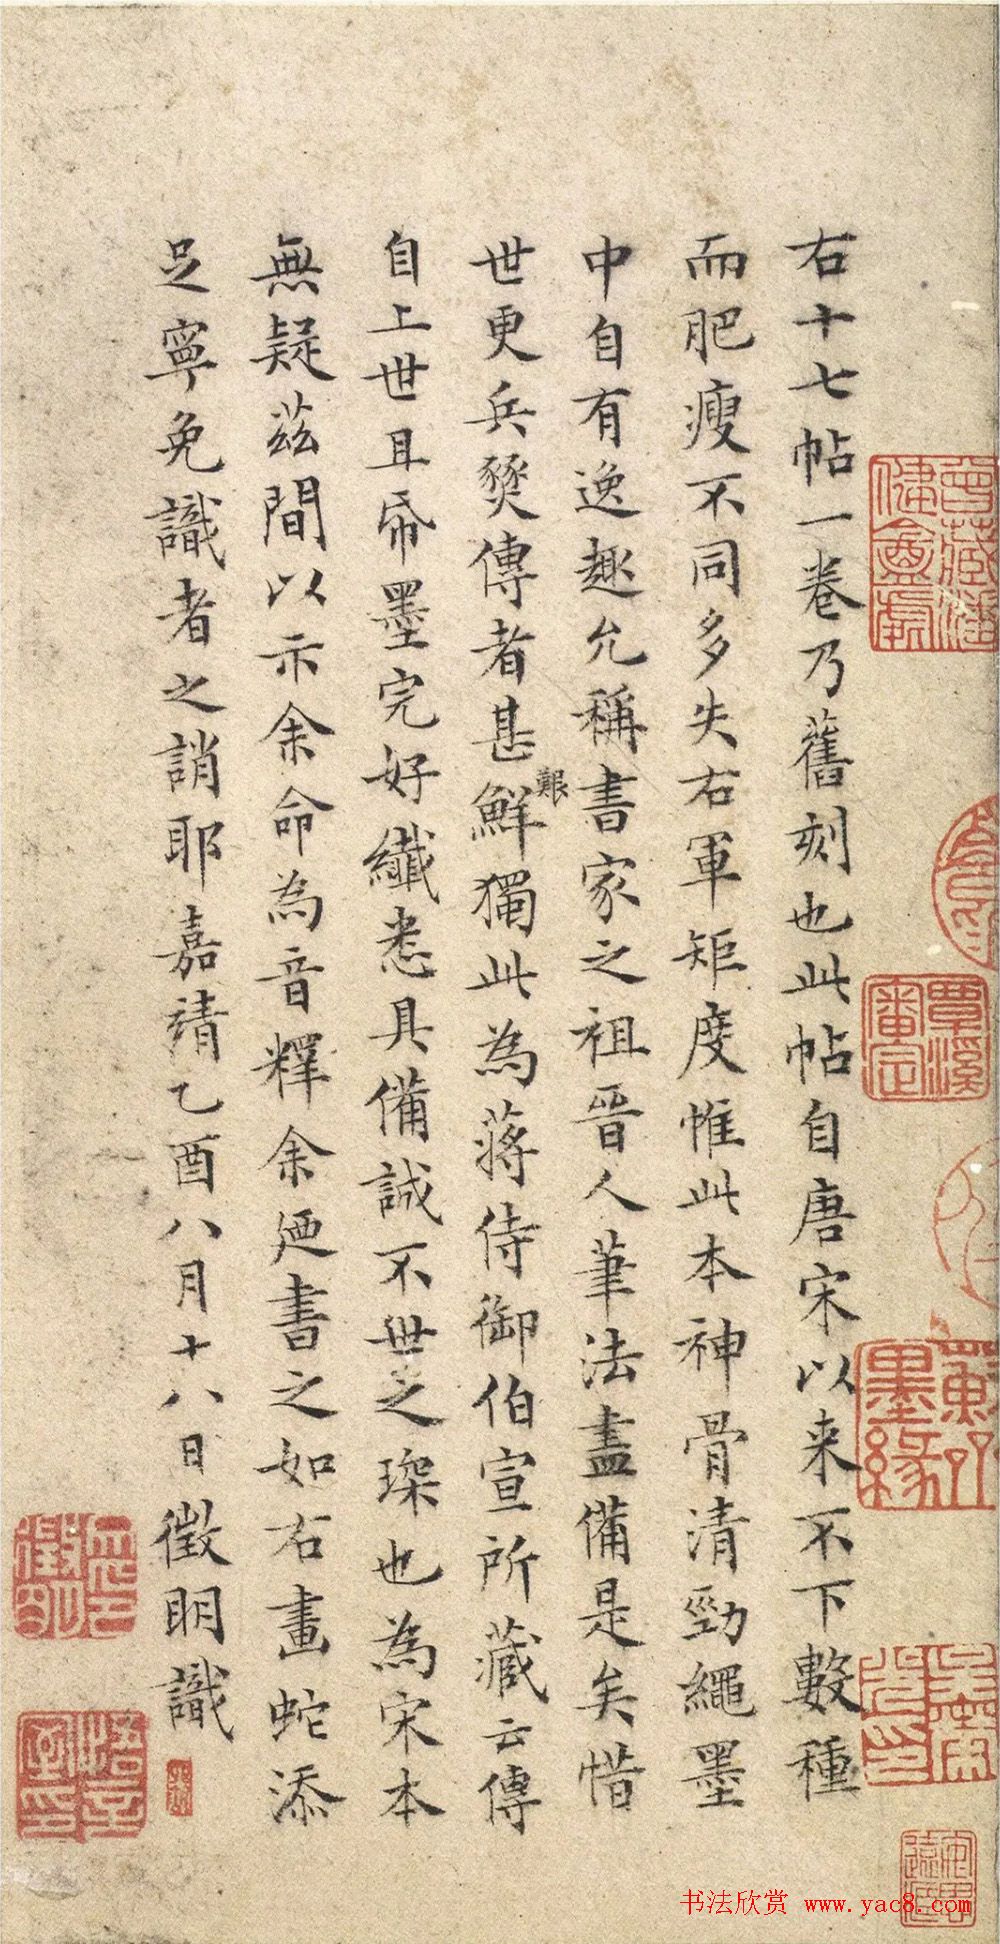 右十七帖一卷乃舊刻也此帖自唐宋以来不下數種
而肥瘦不同多失右軍矩度惟此本神骨清勁繩墨
中自有逸趣允稱書家之祖晉人筆法盡備是矣惜
世更兵燹傳者甚鮮獨此為蔣侍御伯宣所藏云傳
艱
自上世且帋墨完好纖悉具備誠不世之琛也為宋本
無疑茲間以示余命為音釋余廼書之如右畫蛇添
足寧免識者之誚耶嘉靖乙酉八月十八日徵明識
覃溪審定
墨緣
悟言室印
书法欣赏 www.yac8.com